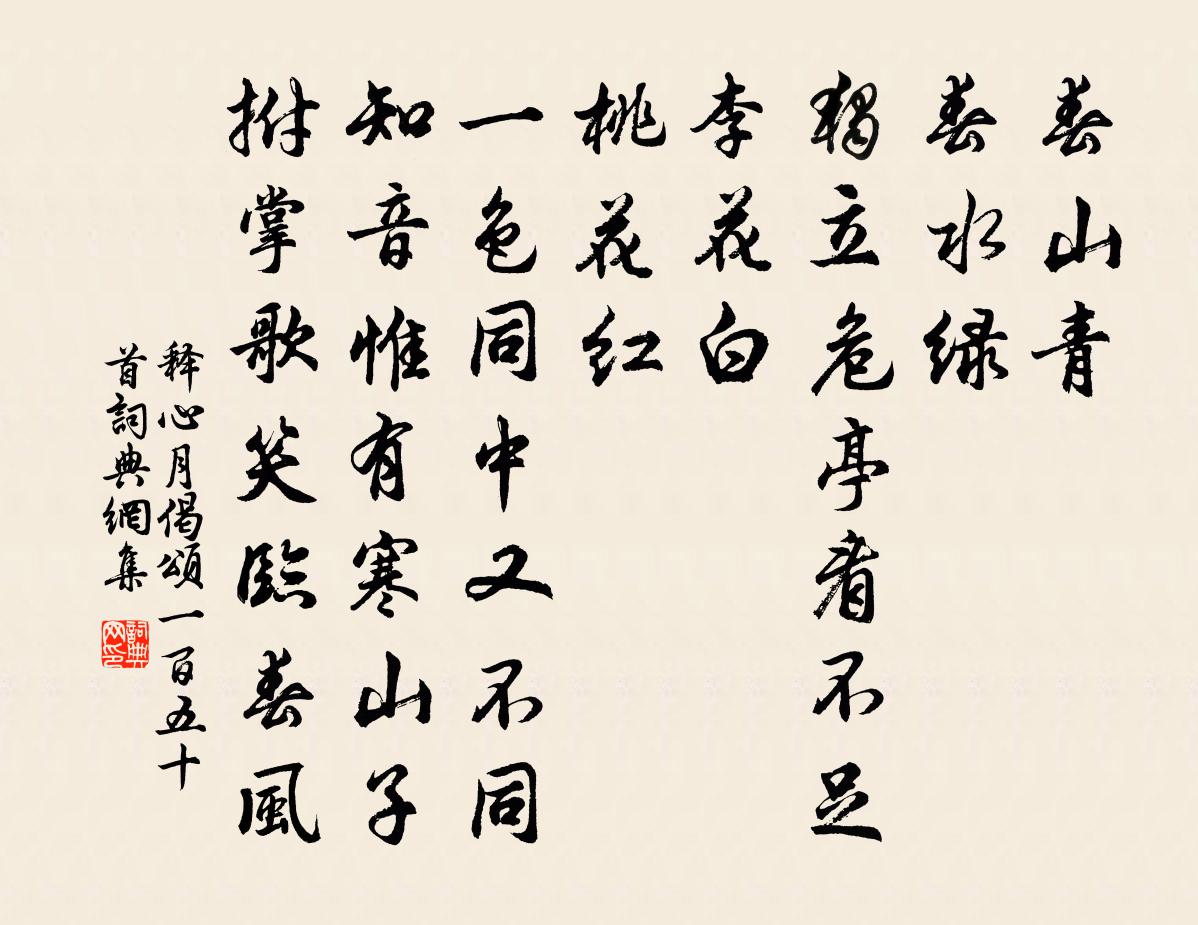 春山青
春水緑
獨立危亭看不足
李花白
桃花红
一色同中又不同
知音惟有寒山子
拊掌歌笑臨春風
释心月偈頌一百五十
首詞典網集
詞典
网印